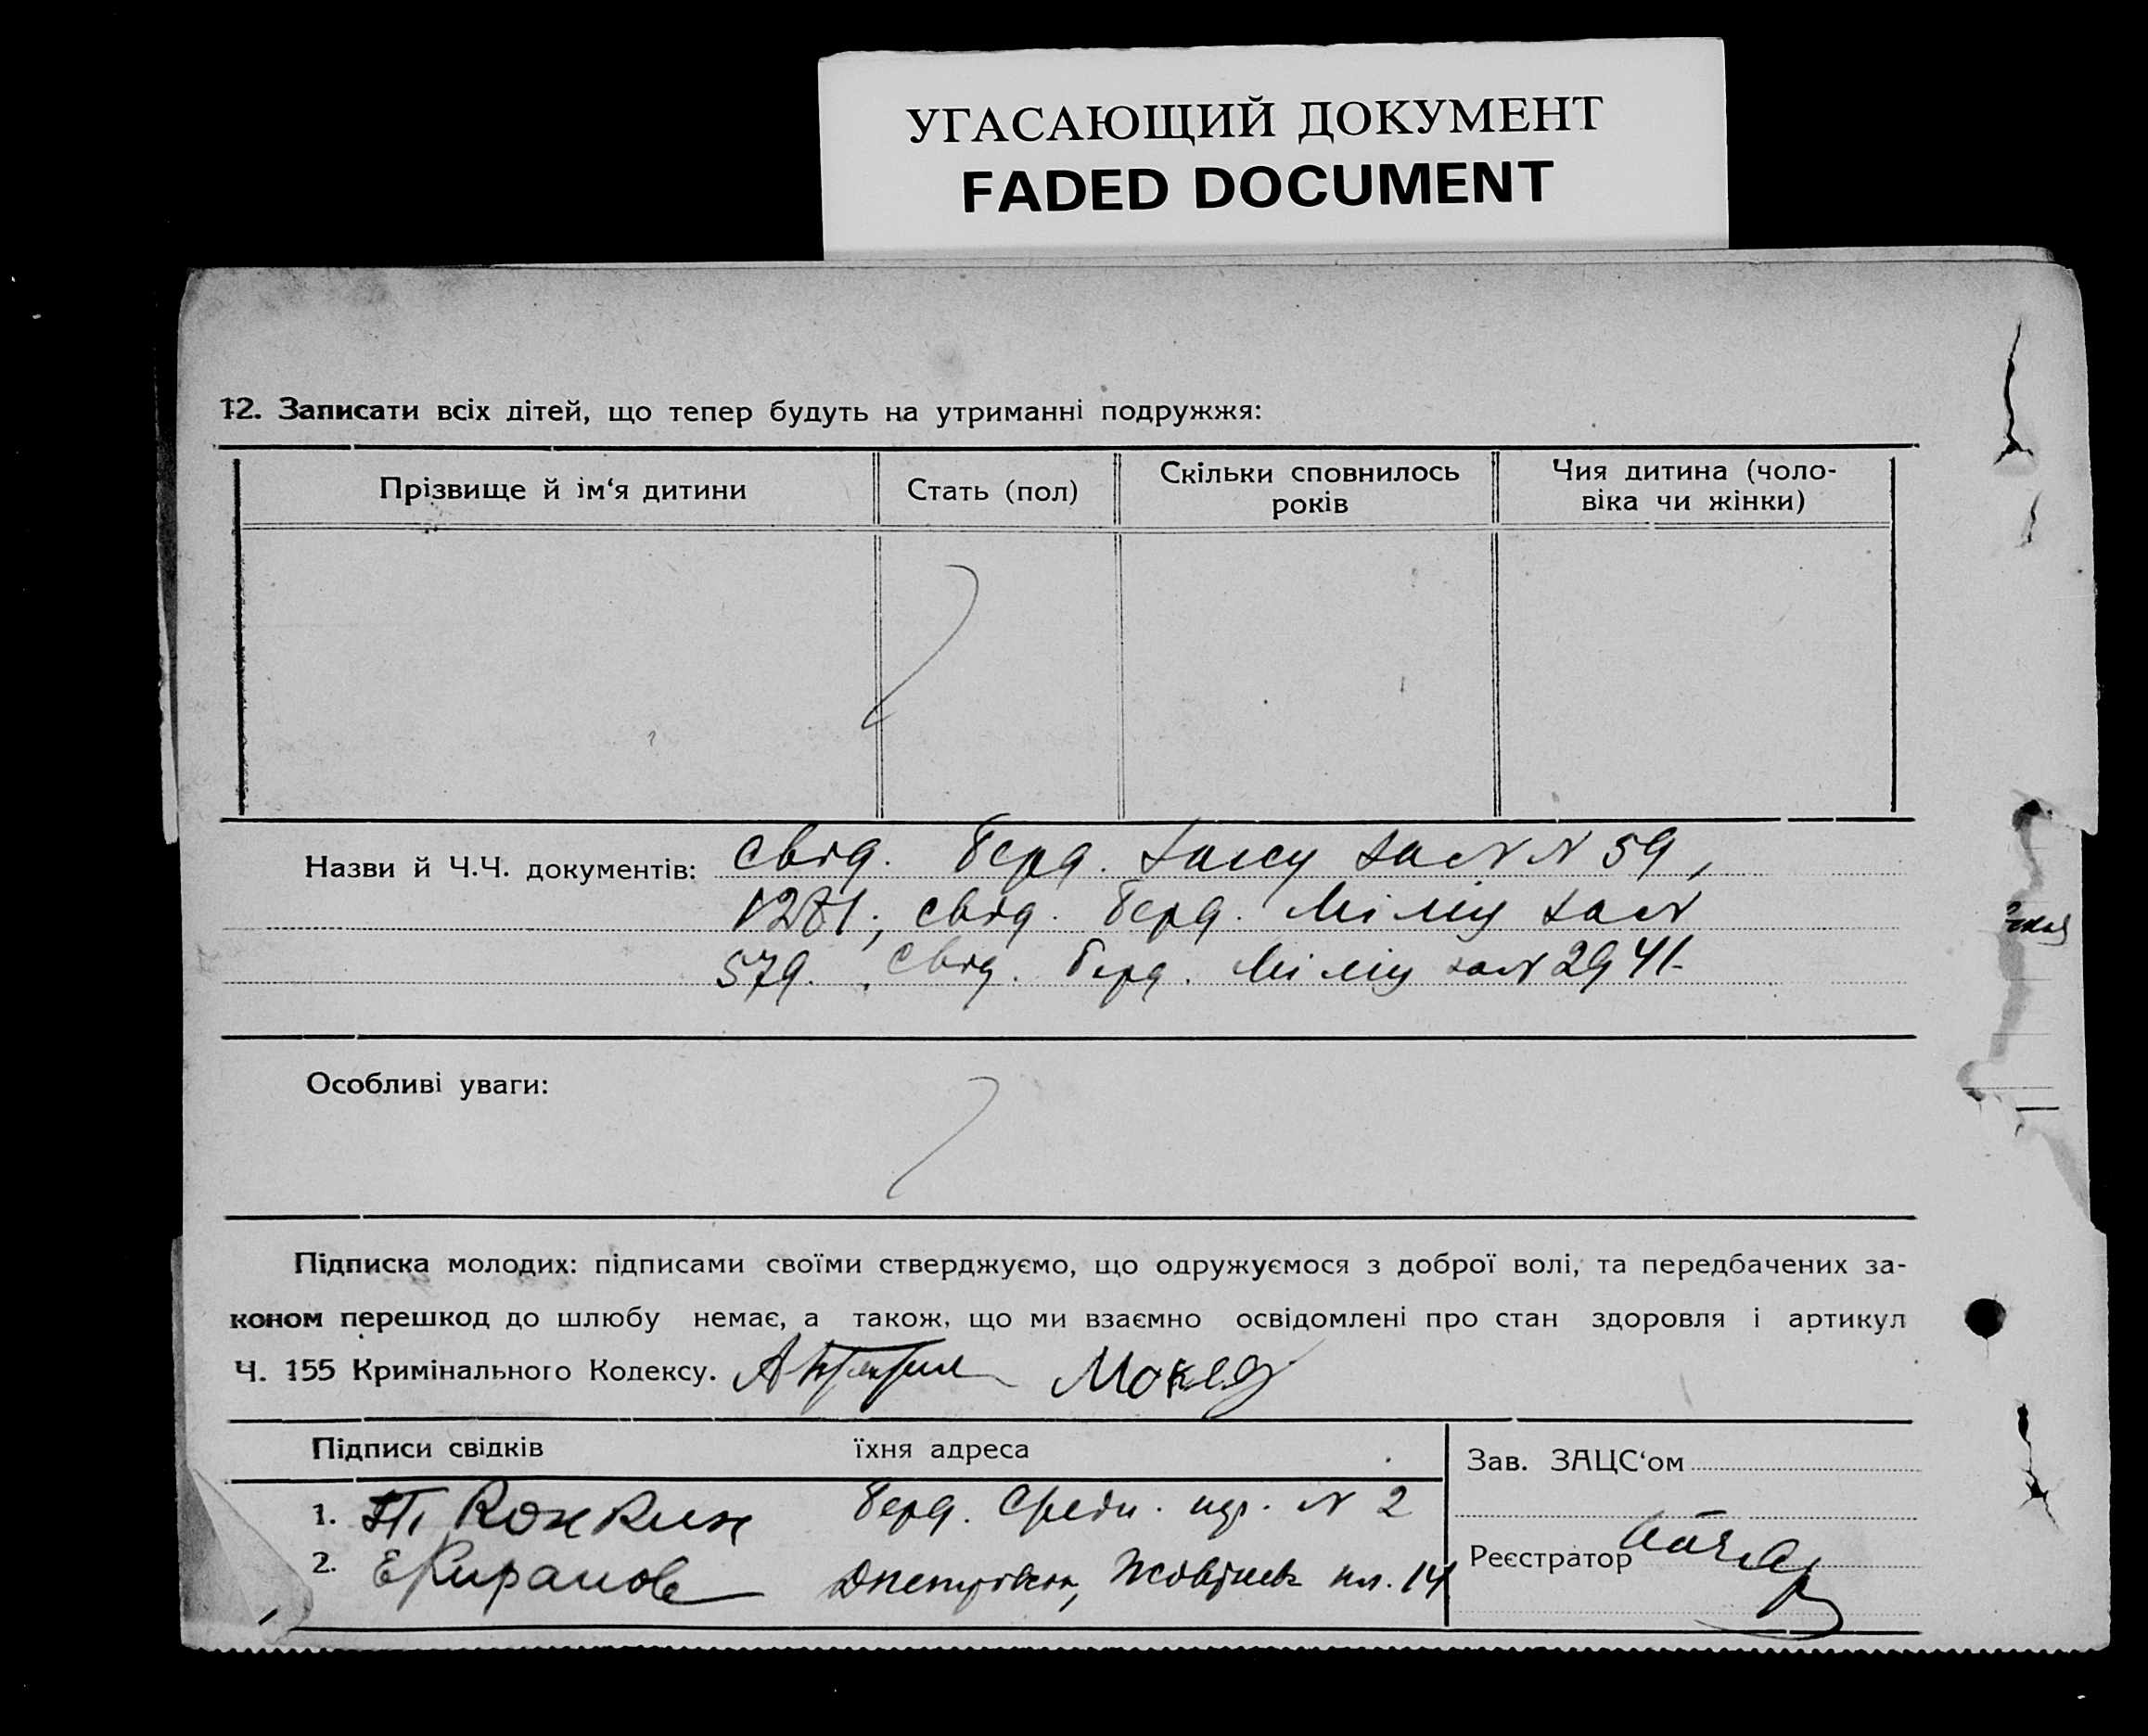 УГАСАЮЩИЙ ДОКУМЕНТ
FADED DOCUMENT
12. Записати всіх дітей, що тепер будуть на утриманні подружжя:
Прізвище й ім‘я дитини
Стать (пол)
Скільки сповнилось
років
Чия дитина (чоло-
віка чи жінки)
Назви й Ч.Ч. документів: свід. Берд. за № № 59,
свід. Берд. за №
579. свід. Берд. за № 2941
Особливі уваги:
Підписка молодих: підписами своїми стверджуємо, що одружуємося з доброї волі, та передбачених за-
коном перешкод до шлюбу немає, а також, що ми взаємно освідомлені про стан здоровля і артикул
Ч. 155 Кримінального Кодексу.
Підписи свідків
їхня адреса
Зав. ЗАЦС‘ом
1. Берд. № 2
2. пл. 14
Реєстратор